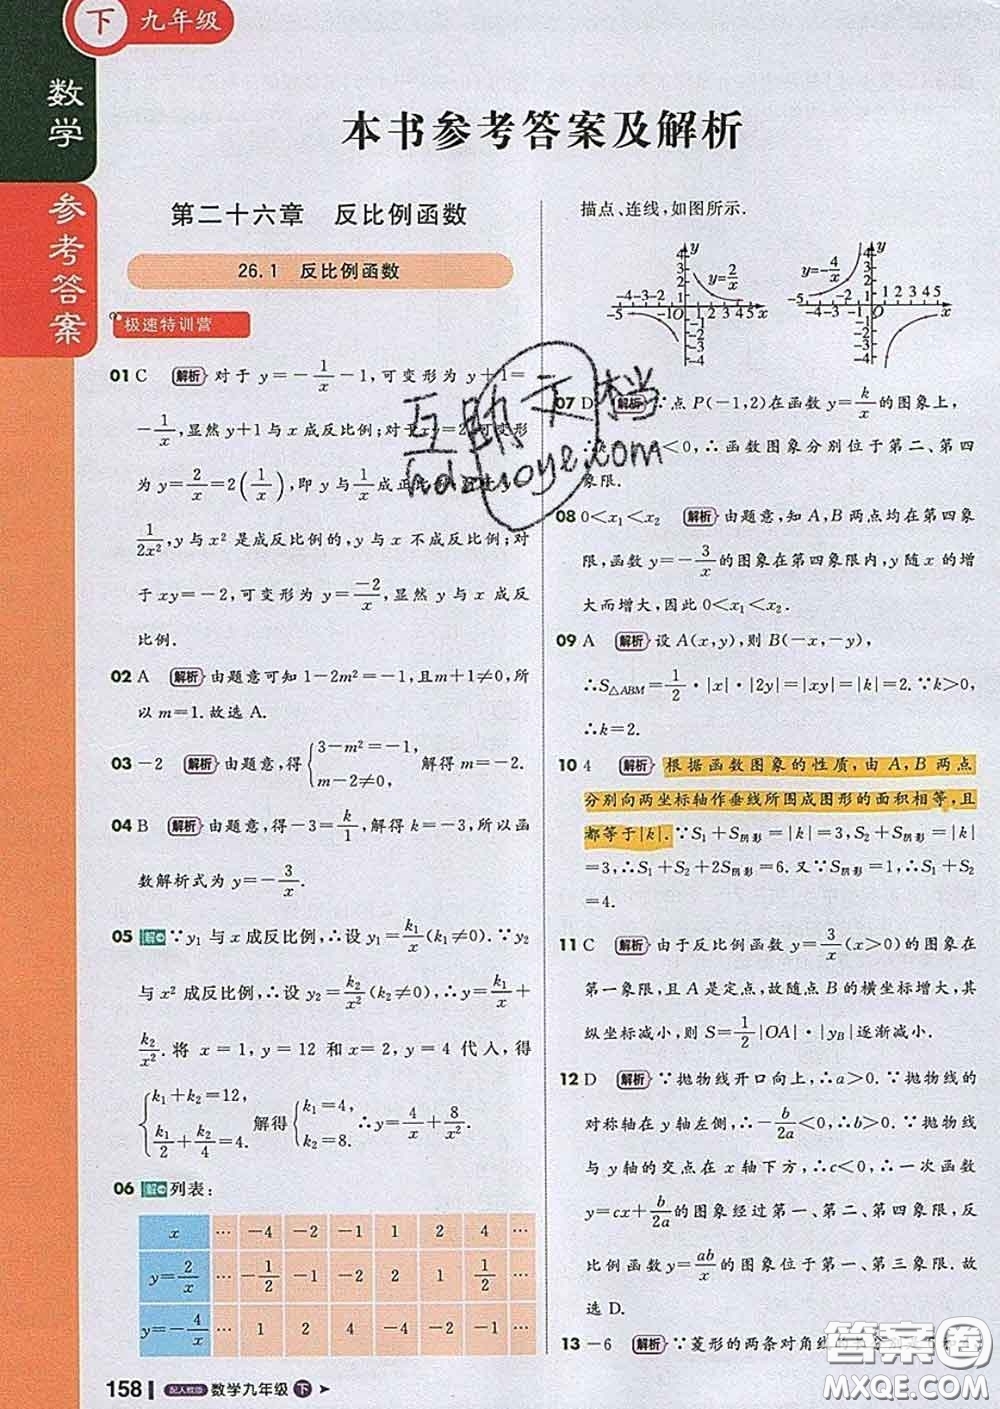 下 九年级
数学
参考答案
本书参考答案及解析
第二十六章 反比例函数
26.1 反比例函数
极速特训营
01 C 解析 对于 y=-1/x-1,可变形为 y+1=
-1/x,显然 y+1 与 x 成反比例;对于 x=2,可变形
为 y=2/x=2(1/x),即 y 与 1/x 成正比
1/2x²,y 与 x² 是成反比例的,y 与 x 不成反比例;对
于 xy=-2,可变形为 y=-2/x,显然 y 与 x 成反
比例.
02 A 解析 由题意可知 1-2m²=-1,且 m+1≠0,所
以 m=1.故选 A.
03 -2 解析 由题意,得{3-m²=-1, m-2≠0, 解得 m=-2.
04 B 解析 由题意,得-3=k/1,解得 k=-3,所以函
数解析式为 y=-3/x.
05 解 ∵y₁ 与 x 成反比例,∴设 y₁=k₁/x(k₁≠0).∵y₂
与 x² 成反比例,∴设 y₂=k₂/x²(k₂≠0),∴y=k₁/x+
k₂/x².将 x=1,y=12 和 x=2,y=4 代入,得
{k₁+k₂=12, k₁/2+k₂/4=4. 解得{k₁=4, k₂=8. ∴y=4/x+8/x².
06 解 列表:
x … -4 -2 -1 1 2 4 …
y=2/x … -1/2 -1 -2 2 1 1/2 …
y=-4/x … 1 2 4 -4 -2 -1 …
158 配人教版 数学九年级 下
描点、连线,如图所示.
y 4 3 2 1 y=2/x -5-4-3-2-1O 1 2 3 4 5 x -1 -2 -3 -4
y=-4/x y 4 3 2 1 -5-4-3-2-1 O 1 2 3 4 5 x -1 -2 -3 -4
07 D 解析 ∵点 P(-1,2)在函数 y=k/x 的图象上,
<0,∴函数图象分别位于第二、第四
象限.
08 0<x₁<x₂ 解析 由题意,知 A,B 两点均在第四象
限,函数 y=-3/x 的图象在第四象限内,y 随 x 的增
大而增大,因此 0<x₁<x₂.
09 A 解析 设 A(x,y),则 B(-x,-y),
∴S△ABM=1/2·|x|·|2y|=|xy|=|k|=2.∵k>0,
∴k=2.
10 4 解析 根据函数图象的性质,由 A,B 两点
分别向两坐标轴作垂线所围成图形的面积相等,且
都等于|k|.∵S₁+S阴影=|k|=3,S₂+S阴影=|k|
=3,∴S₁+S₂+2S阴影=6.又∵S阴影=1,∴S₁+S₂
=4.
11 C 解析 由于反比例函数 y=3/x(x>0)的图象在
第一象限,且 A 是定点,故随点 B 的横坐标增大,其
纵坐标减小,则 S=1/2|OA|·|yB|逐渐减小.
12 D 解析 ∵抛物线开口向上,∴a>0.∵抛物线的
对称轴在 y 轴左侧,∴-b/2a<0,∴b>0.∵抛物线
与 y 轴的交点在 x 轴下方,∴c<0,∴一次函数
y=cx+b/2a的图象经过第一、第二、第四象限,反
比例函数 y=ab/x 的图象位于第一、第三象限.故
选 D.
13 -6 解析 ∵菱形的两条对角线
互助文档
hdzuoye.com
答案圈
MXQE.COM